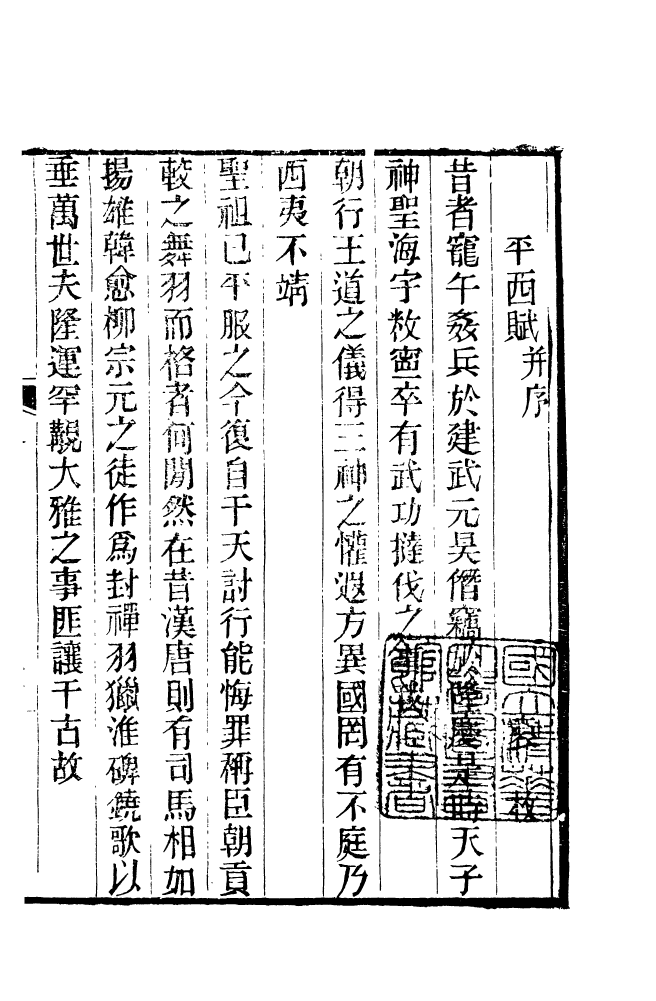 平西賦并序
昔者竉午姦兵於建武元昊僭竊於隆慶是時天子
神聖海宇敉寍卒有武功撻伐之
朝行王道之儀得三神之懽遐方異國罔有不庭乃
西夷不靖
聖祖已平服之今復自干天討行能悔罪稱臣朝貢
較之舞羽而格者何閒然在昔漢唐則有司馬相如
揚雄韓愈柳宗元之徒作爲封禪羽獵淮碑鐃歌以
垂萬世夫隆運罕覯大雅之事匪讓千古故